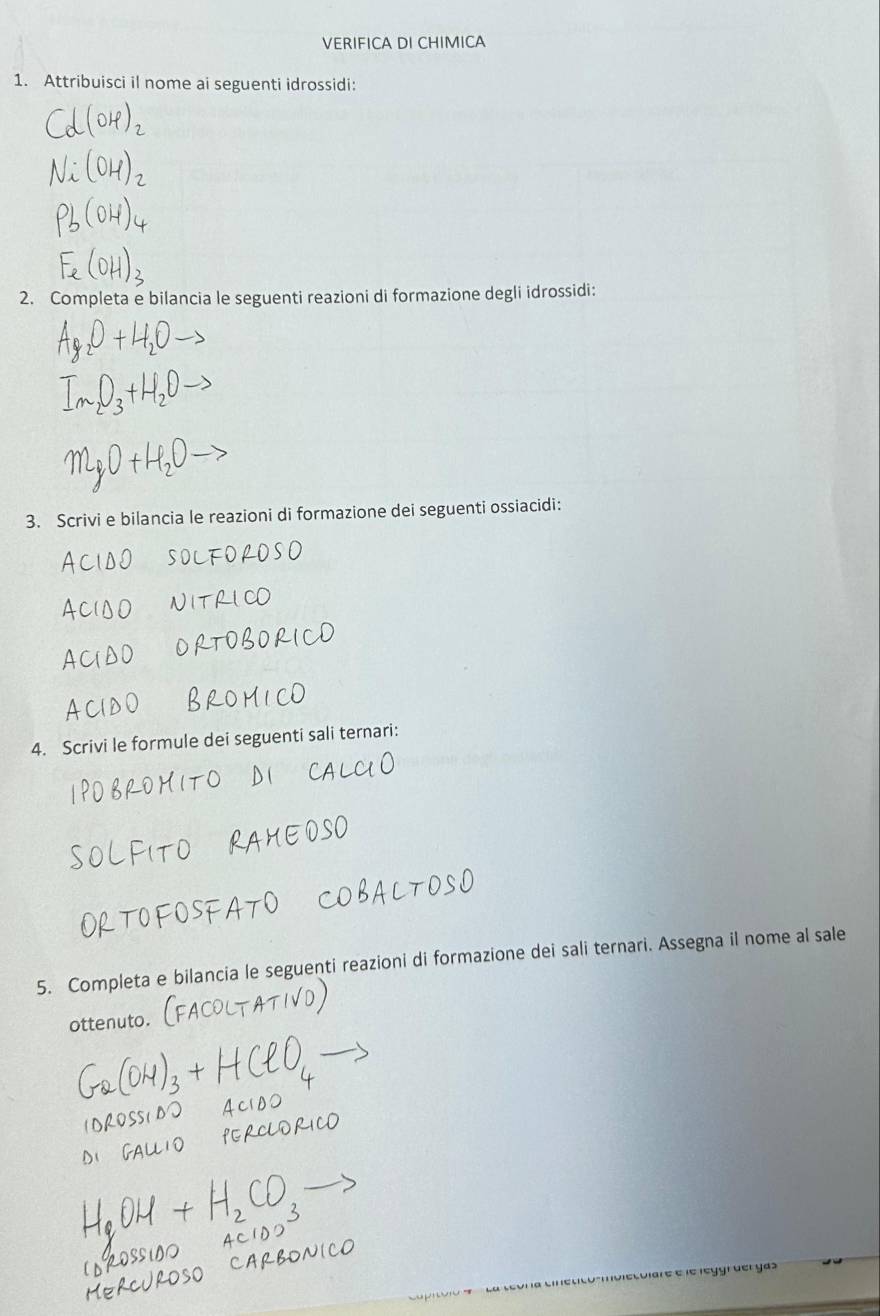 VERIFICA DI CHIMICA
1. Attribuisci il nome ai seguenti idrossidi:
Cd(OH)₂
Ni(OH)₂
Pb(OH)₄
Fe(OH)₃
2. Completa e bilancia le seguenti reazioni di formazione degli idrossidi:
Ag₂O + H₂O →
In₂O₃ + H₂O →
MgO + H₂O →
3. Scrivi e bilancia le reazioni di formazione dei seguenti ossiacidi:
ACIDO SOLFOROSO
ACIDO NITRICO
ACIDO ORTOBORICO
ACIDO BROMICO
4. Scrivi le formule dei seguenti sali ternari:
IPOBROMITO DI CALCIO
SOLFITO RAMEOSO
ORTOFOSFATO COBALTOSO
5. Completa e bilancia le seguenti reazioni di formazione dei sali ternari. Assegna il nome al sale
ottenuto. (FACOLTATIVO)
Ga(OH)₃ + HClO₄ →
IDROSSIDO ACIDO
DI GALLIO PERCLORICO
HgOH + H₂CO₃ →
IDROSSIDO ACIDO
MERCUROSO CARBONICO
Capitolo 4 La teoria cinetico-molecolare e le leggi dei gas